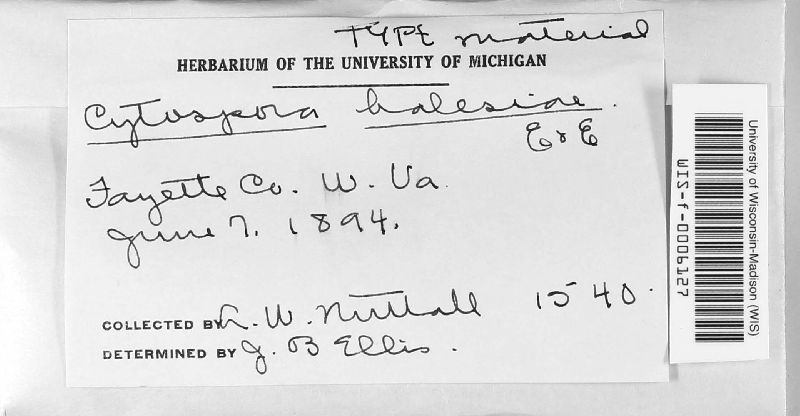 TYPE material
HERBARIUM OF THE UNIVERSITY OF MICHIGAN
Cytospora halesiae.
E & E
Fayette Co. W. Va.
June 7. 1894.
COLLECTED BY L. W. Nuttall 1540.
DETERMINED BY J. B Ellis.
University of Wisconsin-Madison (WIS)
WIS-f-0009127